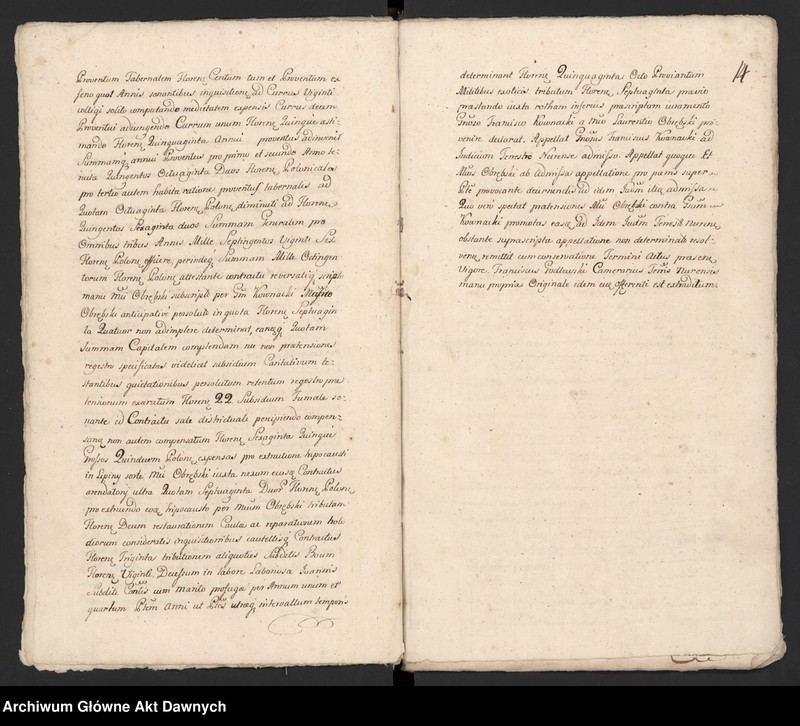 Proventum Tabernalem Floren Centum tum et Proventum ex
feno quot Annis sonantibus inquisitioni, ad Currus Viginti
colligi solito computando medietatem expensis Currus decem
Proventui adiungendo Currum unum Floren Quinque aesti-
mando Floren Quinquaginta Annui proventus adinvenit
Summamq annui Proventus pro primo et secundo Anno te-
nuta Quingentos Octuaginta Duos Floren Polonicales
pro tertio autem habita ratione proventus tabernalis ad
Quotam Octuaginta Floren Polon diminuti ad Floren
Quingentos Sexaginta duos Summam Generalem pro
Omnibus tribus Annis Mille Septingentos Viginti Sex
Floren Polon efficere, perindeq Summam Mille Octingen
torum Floren Polon attestante contractu reversaliq scripto
manu Mci Obrębski subscripti per Gm Kownacki
Obrębski anticipative persoluti in quota Floren Septuagin
ta Quatuor non adimplere determinat, eamq Quotam
Summam Capitalem complendam nec non praetensiones
regestro specificatas videlicet subsidium Caritativum te-
stantibus quietationibus persolutum retentum regestro prae
tensionum exaratum Floren 22 Subsidium Fumale so-
nante id Contractu sale districtuali percipiendo compen-
sans non autem compensatum Floren Sexaginta Quinque
Grossos Quindecim Polon expensas pro extructione hypocausti
in Lipiny sorte Mci Obrębski iuxta nexum eiusq Contractus
arendatory ultra Quotam Septuaginta Duos Floren Polon
pro extruendo eoq hipocausto per Mcum Obrębski tributam
Floren Decem restaurationem Caula ac reparationem holo
diorum consideratis inquisitionibus cautellisq Contractus
Floren Triginta tributionem aliquoties Subditis Boum
Floren Viginti, Decessum in labore Laboriosa Joannis
Subditi cum marito profuga per Annum unum et
quartum Ptem Anni ut Ptes utraq intervallum temporis
14
determinant Floren Quinquaginta Octo Proviantum
Militibus exoticis tributum Floren Septuaginta praevio
praestando iuxta rotham inferius praescriptam iuramento
Gnoso Francisco Kownacki a Mco Laurentio Obrębski pro-
venire declarat. Appellat Gnosus Franciscus Kownacki ad
Judicium Terrestre Nurense admissa. Appellat quoque Et
Mcus Obrębski ab admissa appellatione pro poenis super
Pte provocante decernendis ad idem Judm itidem admissa
Quo vero spectat praetensiones Mci Obrębski contra Gnum
Kownacki promotas easq ad Idem Judm Terrestre Nurense
obstante suprascripta appellatione non determinatas resol-
vens remittit cum conservatione Termini Actus praesentis
Vigore. Franciscus Podlewski Camerarius Terris Nurensis
manu propria Originale idem eius offerenti est extraditum
Archiwum Główne Akt Dawnych